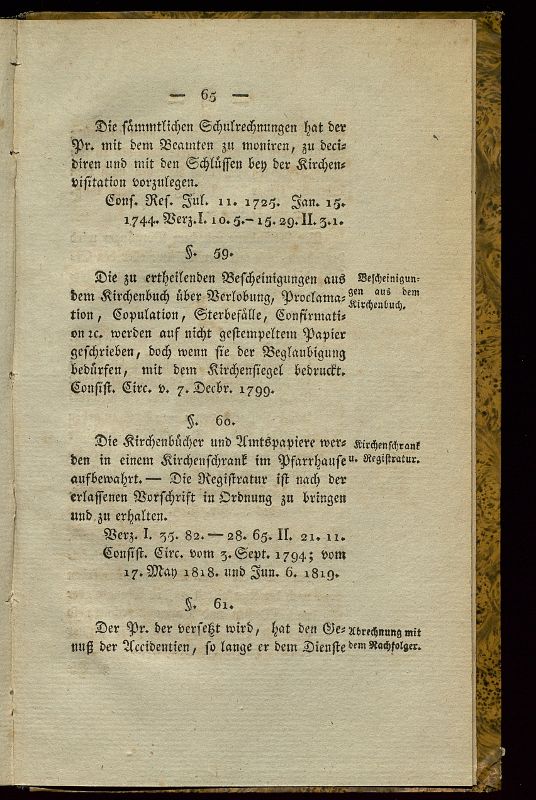 — 65 —
Die sämmtlichen Schulrechnungen hat der
Pr. mit dem Beamten zu moniren, zu deci-
diren und mit den Schlüssen bey der Kirchen-
visitation vorzulegen.
Cons. Res. Jul. 11. 1725. Jan. 15.
1744. Verz. I. 10. 5.— 15. 29. II. 3. 1.
§. 59.
Die zu ertheilenden Bescheinigungen aus
dem Kirchenbuch über Verlobung, Proclama-
tion, Copulation, Sterbefälle, Confirmati-
on ꝛc. werden auf nicht gestempeltem Papier
geschrieben, doch wenn sie der Beglaubigung
bedürfen, mit dem Kirchensiegel bedruckt.
Consist. Circ. v. 7. Decbr. 1799.
Bescheinigun-
gen aus dem
Kirchenbuch.
§. 60.
Die Kirchenbücher und Amtspapiere wer-
den in einem Kirchenschrank im Pfarrhause
aufbewahrt. — Die Registratur ist nach der
erlassenen Vorschrift in Ordnung zu bringen
und zu erhalten.
Kirchenschrank
u. Registratur.
Verz. I. 35. 82. — 28. 65. II. 21. 11.
Consist. Circ. vom 3. Sept. 1794; vom
17. May 1818. und Jun. 6. 1819.
§. 61.
Der Pr. der versetzt wird, hat den Ge-
nuß der Accidentien, so lange er dem Dienste
Abrechnung mit
dem Nachfolger.